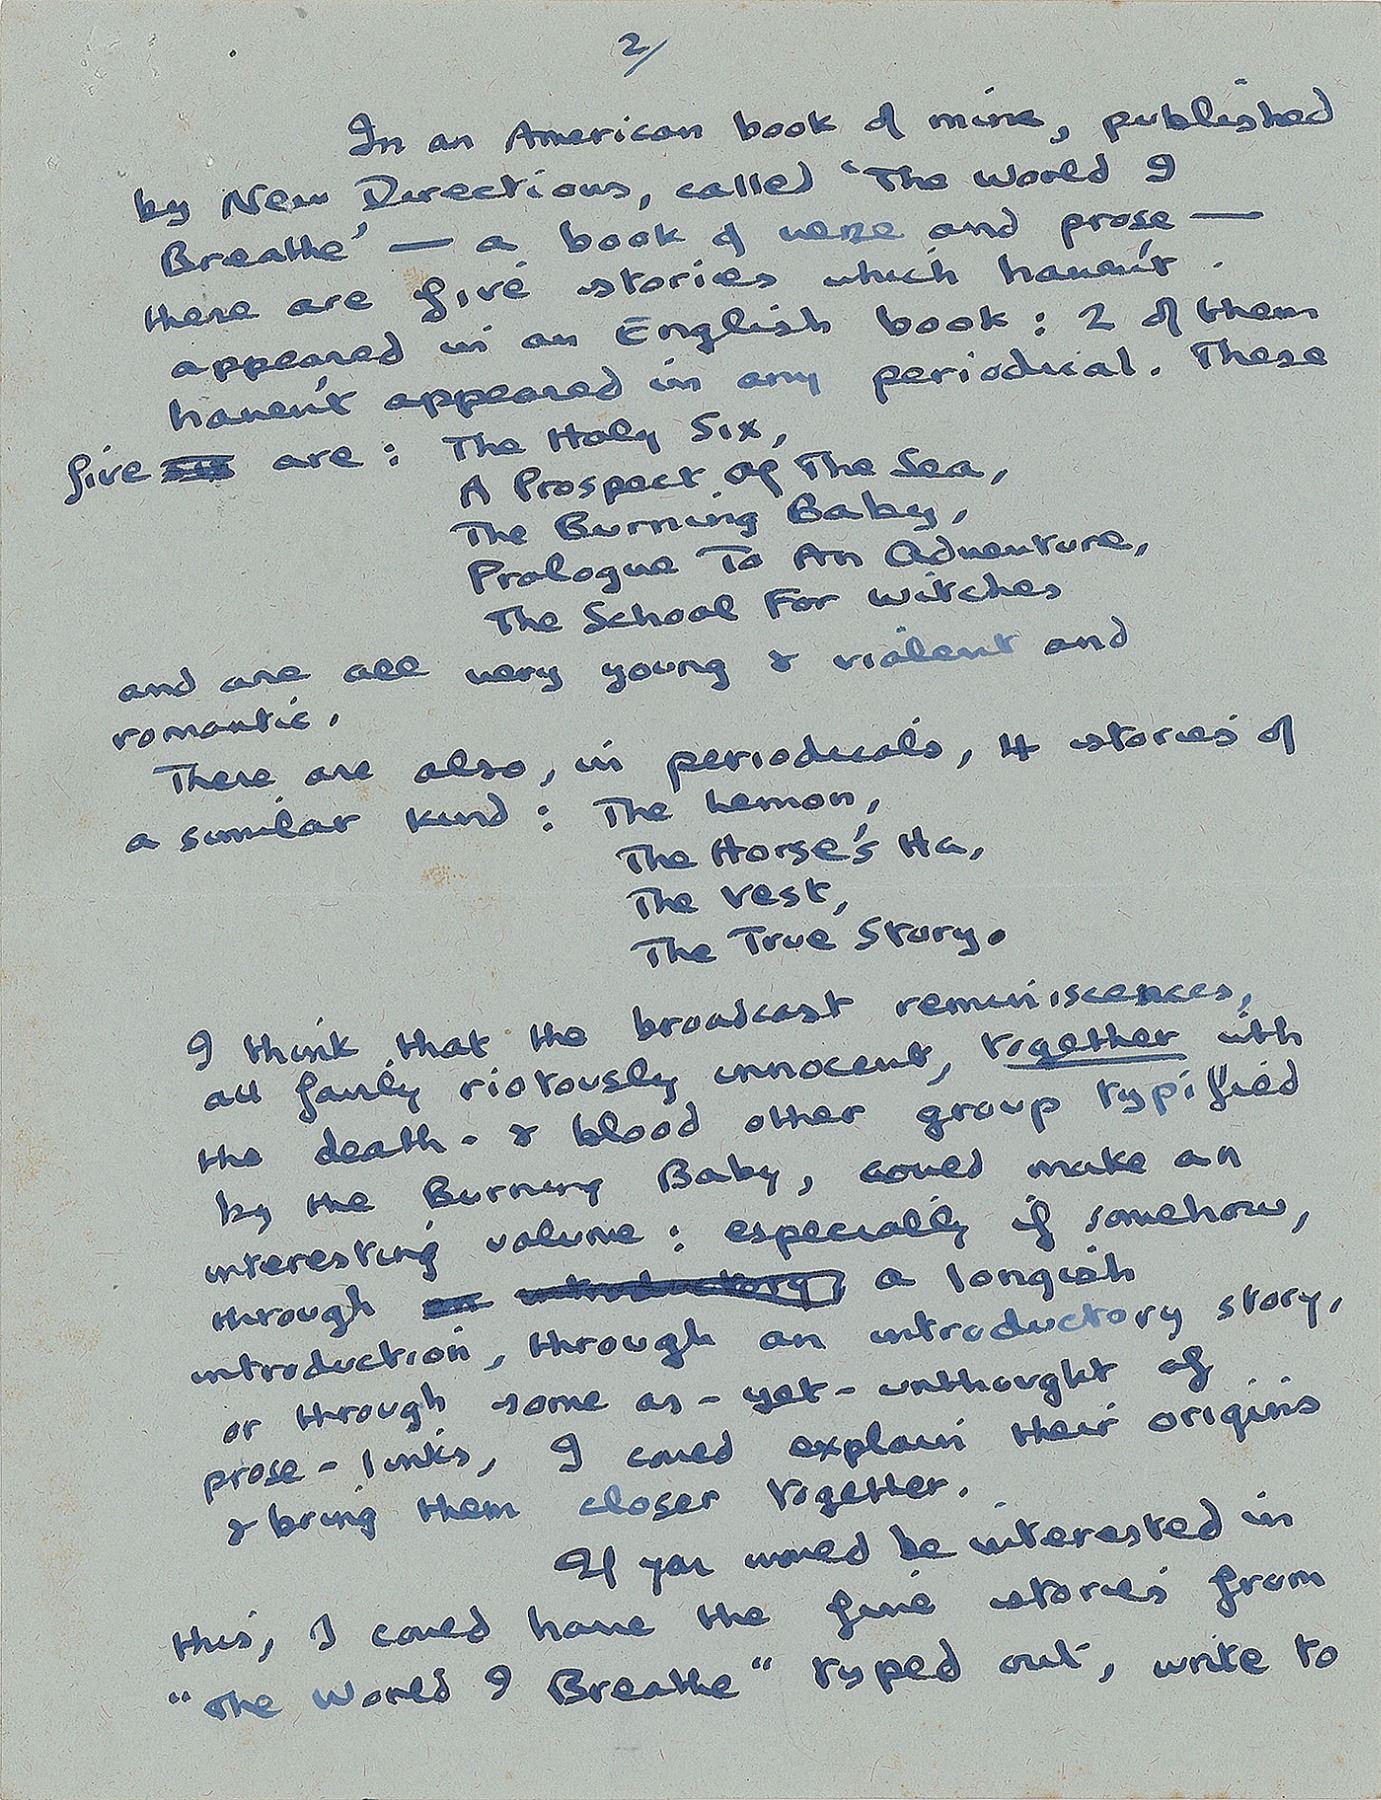 2/
In an American book of mine, published
by New Directions, called 'The World I
Breathe' — a book of verse and prose —
there are five stories which haven't
appeared in an English book: 2 of them
haven't appeared in any periodical. These
five are: The Holy Six,
A Prospect Of The Sea,
The Burning Baby,
Prologue To An Adventure,
The School For Witches
and are all very young & violent and
romantic.
There are also, in periodicals, 4 stories of
a similar kind: The Lemon,
The Horse's Ha,
The Vest,
The True Story.
I think that the broadcast reminiscences,
all fairly riotously innocent, together with
the death- & blood other group typified
by the Burning Baby, could make an
interesting volume: especially if somehow,
through an introductory a longish
introduction, through an introductory story,
or through some as-yet-unthought of
prose-links, I could explain their origins
& bring them closer together.
If you would be interested in
this, I could have the five stories from
"The World I Breathe" typed out, write to